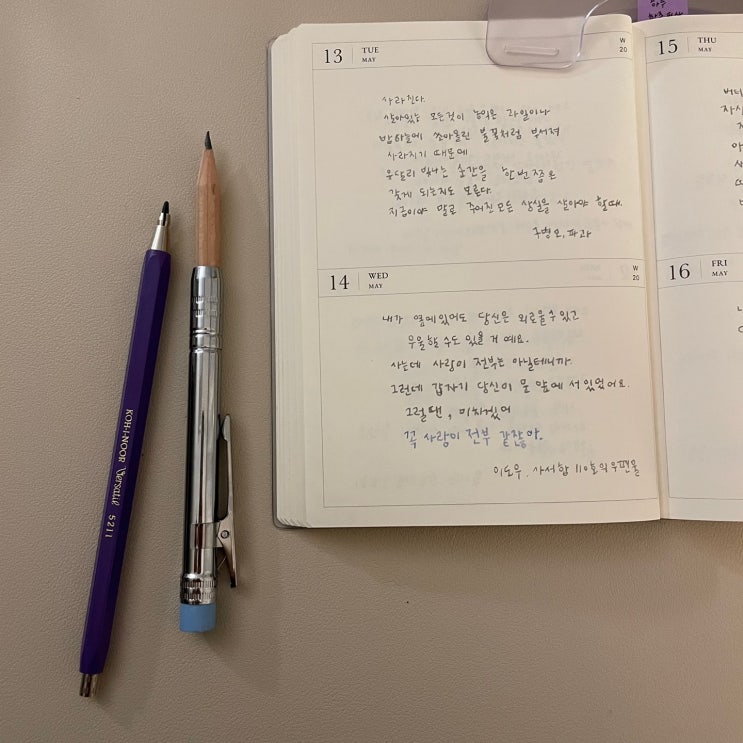 13 TUE MAY W 20
사라진다.
살아있는 모든것이 농익은 과일이나
밤하늘에 쏘아올린 불꽃처럼 부서져
사라지기 때문에
유달리 빛나는 순간을 한번쯤은
갖게 되는지도 모른다.
지금이야 말로 주어진 모든 상실을 살아야 할때.
구병모, 파과
14 WED MAY W 20
내가 옆에있어도 당신은 외로울수있고
우울할 수도 있을 거 예요.
사는데 사랑이 전부는 아닐테니까.
그런데 갑자기 당신이 문 앞에 서 있었어요.
그럴땐, 미치겠어
꼭 사랑이 전부 같잖아.
이도우, 사서함 110호의 우편물
15 THU MAY
16 FRI MAY
KOH-I-NOOR Versatil 5211